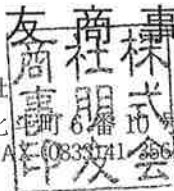 友商事
株式会
社朋友
商事印
町6番10号
AX (0833)41-356